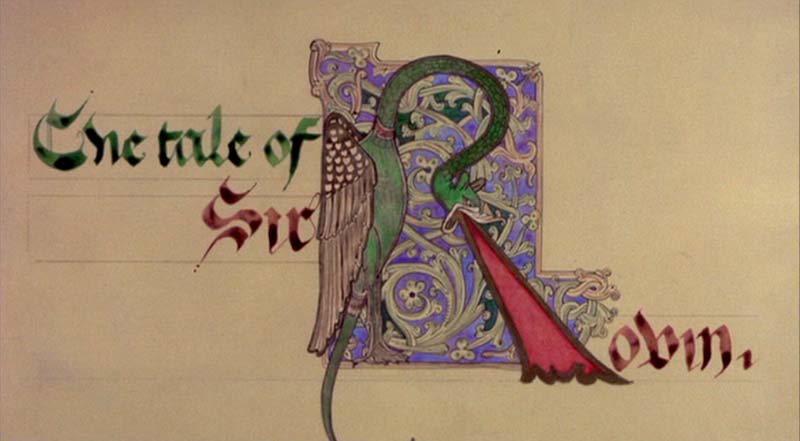 The tale of
Sir
Robin.